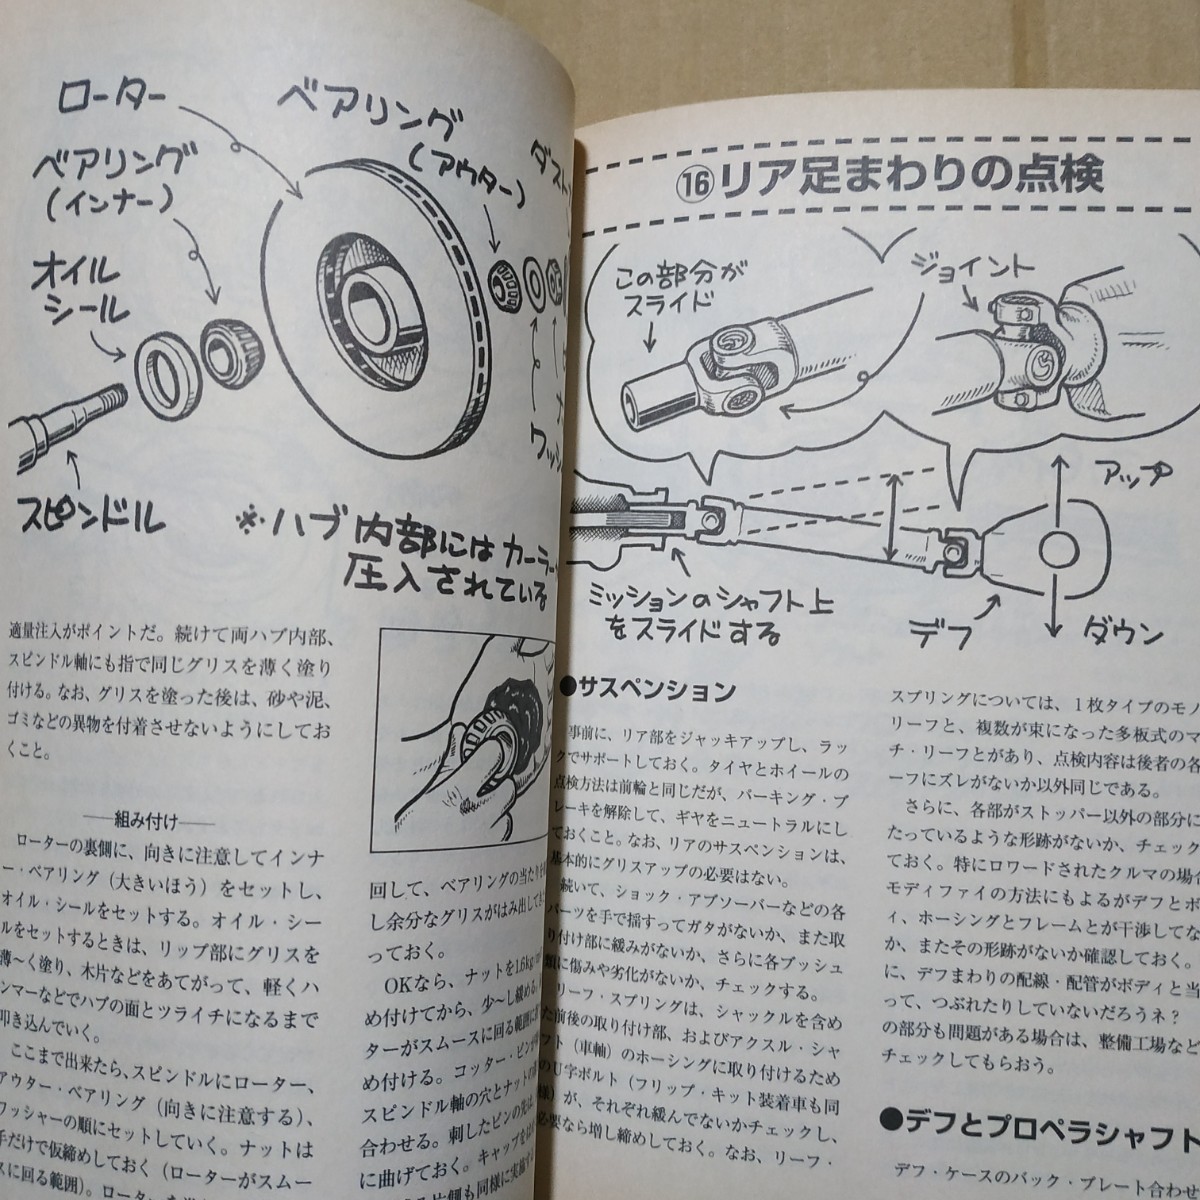 ローター
ベアリング
(アウター)
ベアリング
(インナー)
オイル
シール
スピンドル
※ハブ内部にはカーラー
圧入されている
適量注入がポイントだ。続けて両ハブ内部、
スピンドル軸にも指で同じグリスを薄く塗り
付ける。なお、グリスを塗った後は、砂や泥、
ゴミなどの異物を付着させないようにしてお
くこと。
―組み付け―
ローターの裏側に、向きに注意してインナ
ー・ベアリング(大きいほう)をセットし、
オイル・シールをセットする。オイル・シー
ルをセットするときは、リップ部にグリスを
薄〜く塗り、木片などをあてがって、軽くハ
ンマーなどでハブの面とツライチになるまで
叩き込んでいく。
ここまで出来たら、スピンドルにローター、
アウター・ベアリング(向きに注意する)、
ワッシャーの順にセットしていく。ナットは
手だけで仮締めしておく(ローターがスムー
スに回る範囲)。
回して、ベアリングの当たりを
し余分なグリスがはみ出して
っておく。
OKなら、ナットを1.6kg
め付けてから、少〜し緩める。
ターがスムースに回る範囲に
め付ける。コッター・ピン
スピンドル軸の穴とナットの
合わせる。刺したピンの先は
に曲げておく。キャップを
片側も同様に実施する
⑯リア足まわりの点検
この部分が
スライド
ジョイント
アップ
ダウン
デフ
ミッションのシャフト上
をスライドする
●サスペンション
事前に、リア部をジャッキアップし、ラッ
クでサポートしておく。タイヤとホイールの
点検方法は前輪と同じだが、パーキング・ブ
レーキを解除して、ギヤをニュートラルにし
ておくこと。なお、リアのサスペンションは、
基本的にグリスアップの必要はない。
続いて、ショック・アブソーバーなどの各
パーツを手で揺すってガタがないか、また取
り付け部に緩みがないか、さらに各ブッシュ
類に傷みや劣化がないか、チェックする。
リーフ・スプリングは、シャックルを含め
た前後の取り付け部、およびアクスル・シャ
フト(車軸)のホーシングに取り付けるため
のU字ボルト(フリップ・キット装着車も同
様)が、それぞれ緩んでないかチェックし、
必要なら増し締めしておく。なお、リーフ・
スプリングについては、1枚タイプのモノ
リーフと、複数が束になった多板式のマ
チ・リーフとがあり、点検内容は後者の各
ーフにズレがないか以外同じである。
さらに、各部がストッパー以外の部分に
たっているような形跡がないか、チェック
ておく。特にロワードされたクルマの場合
モディファイの方法にもよるがデフとボ
ィ、ホーシングとフレームとが干渉してな
か、またその形跡がないか確認しておく。
に、デフまわりの配線・配管がボディと当
って、つぶれたりしていないだろうネ?
の部分も問題がある場合は、整備工場など
チェックしてもらおう。
●デフとプロペラシャフト
デフ・ケースのバック・プレート合わせ